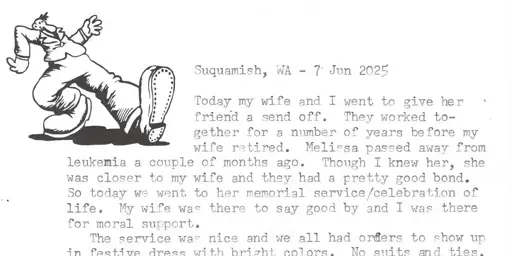 Suquamish, WA - 7 Jun 2025
Today my wife and I went to give her
friend a send off. They worked to-
gether for a number of years before my
wife retired. Melissa passed away from
leukemia a couple of months ago. Though I knew her, she
was closer to my wife and they had a pretty good bond.
So today we went to her memorial service/celebration of
life. My wife was there to say good by and I was there
for moral support.
The service was nice and we all had orders to show up
in festive dress with bright colors. No suits and ties.